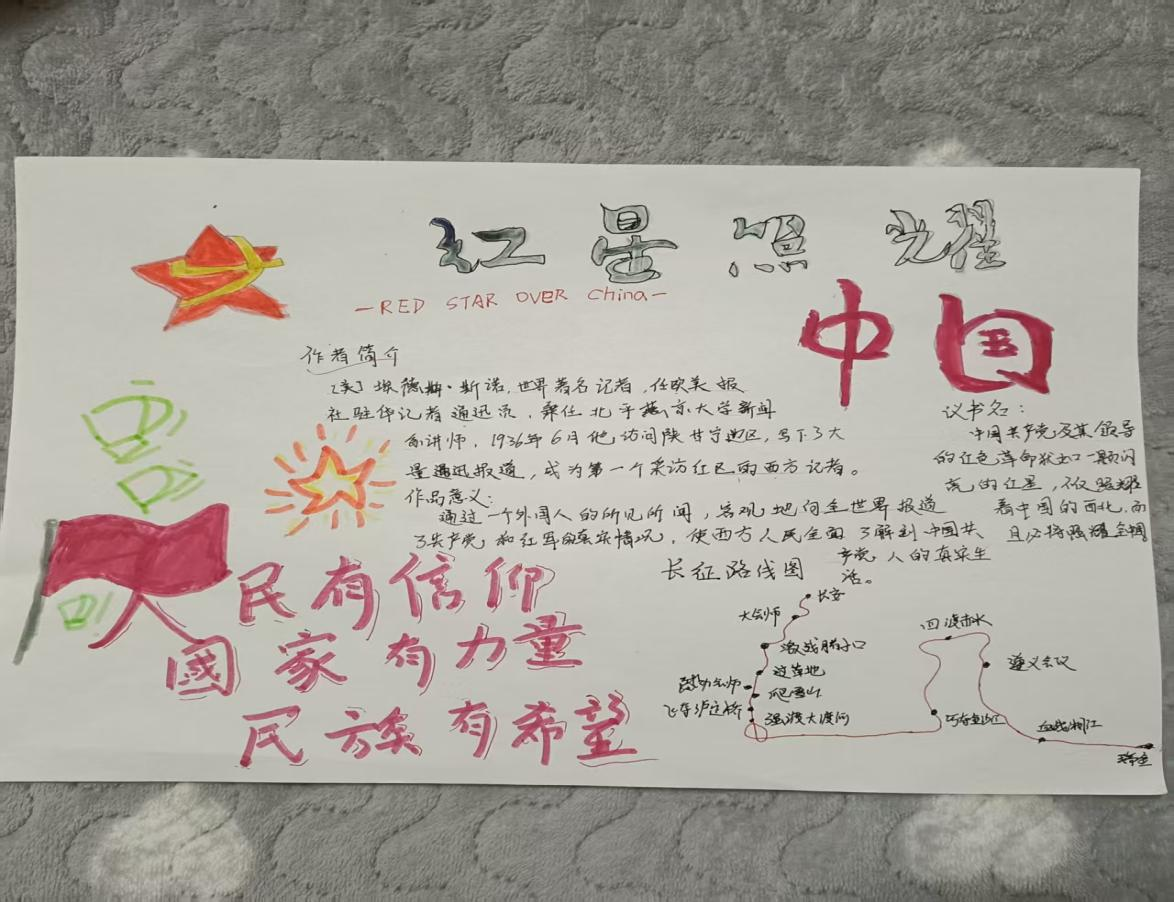 红星照耀
中国
-RED STAR OVER China-
作者简介
[美]埃德加·斯诺,世界著名记者,任欧美报
社驻华记者通迅员,兼任北平燕京大学新闻
系讲师,1936年6月他访问陕甘宁边区,写下了大
量通迅报道,成为第一个采访红区的西方记者。
作品意义:
通过一个外国人的所见所闻,客观地向全世界报道
了共产党和红军的真实情况,使西方人民全面了解到中国共
产党人的真实生
活。
议书名:
中国共产党及其领导
的红色革命犹如一颗闪
亮的红星,不仅照耀
着中国的西北,而
且必将照耀全国
人民有信仰
國家有力量
民族有希望
长征路线图
长安
大会师
激战腊子口
过草地
懋功会师
爬雪山
飞夺泸定桥
强渡大渡河
四渡赤水
遵义会议
巧夺金沙江
血战湘江
瑞金